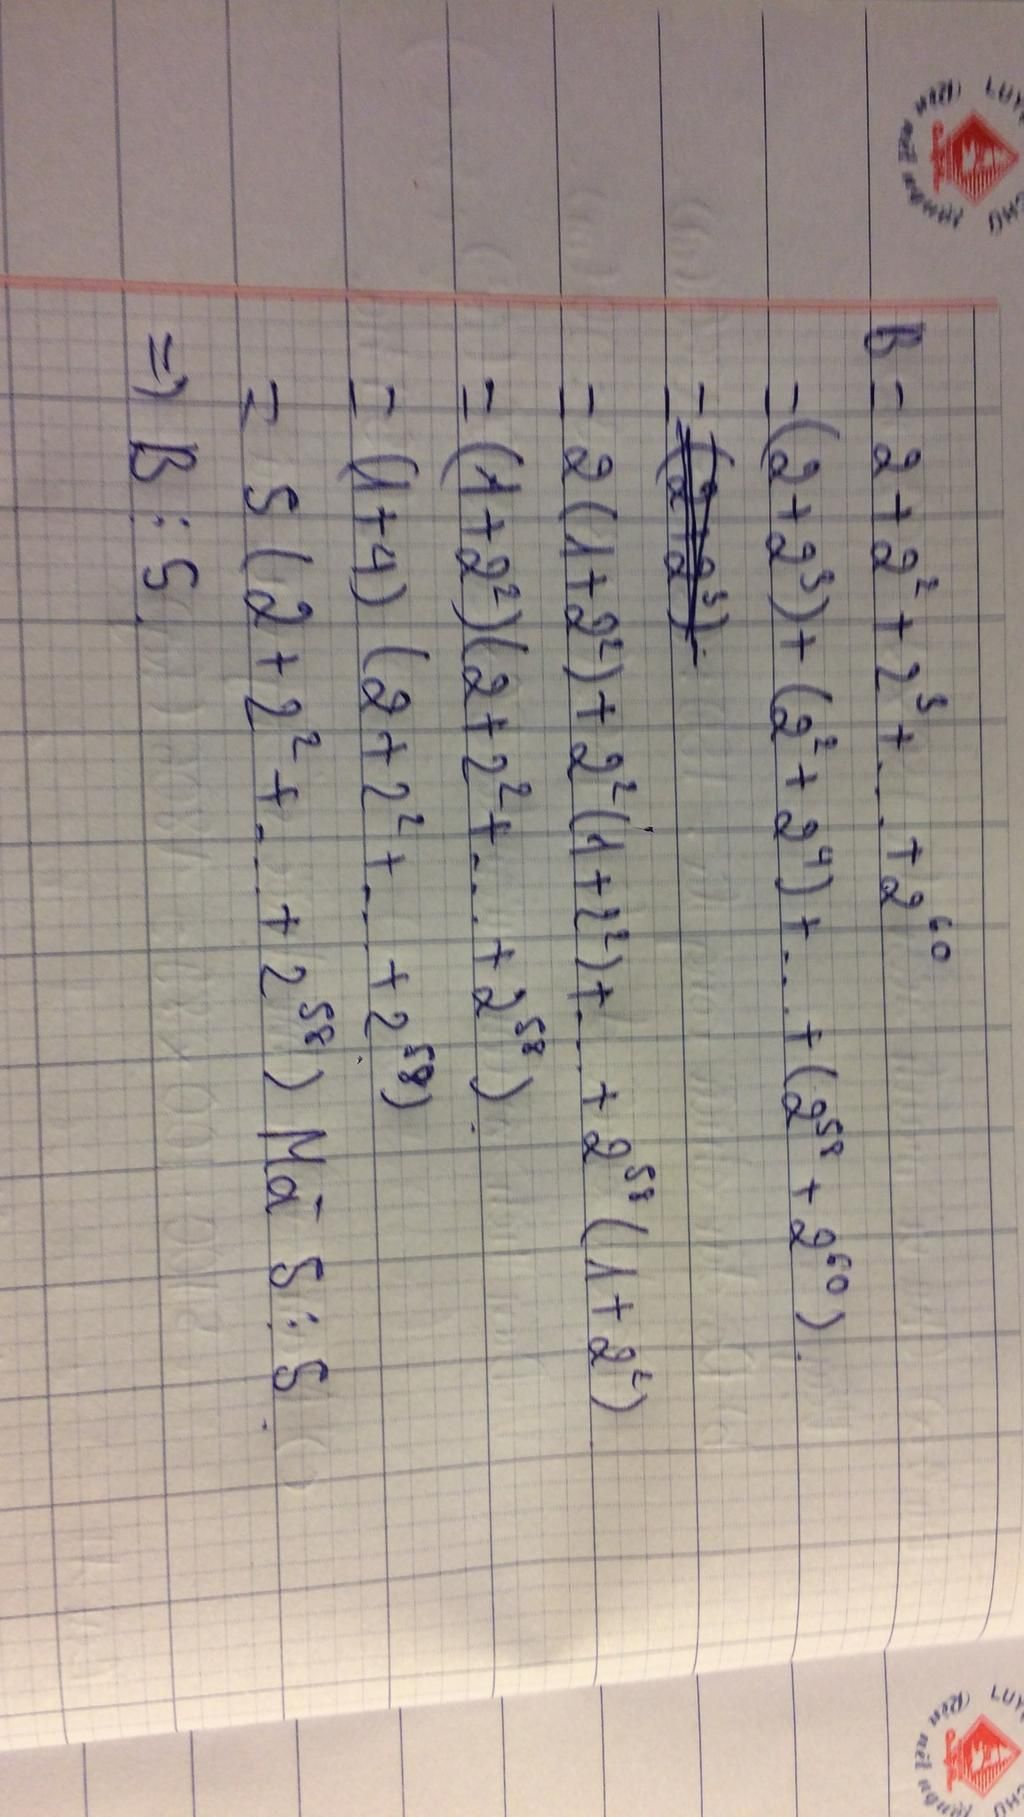 B = 2 + 2² + 2³ + ... + 2⁶⁰
= (2 + 2³) + (2² + 2⁴) + ... + (2⁵⁸ + 2⁶⁰).
= 2(1 + 2²) + 2²(1 + 2²) + ... + 2⁵⁸(1 + 2²)
= (1 + 2²)(2 + 2² + ... + 2⁵⁸).
= (1 + 4)(2 + 2² + ... + 2⁵⁸)
= 5(2 + 2² + ... + 2⁵⁸) Mà 5 ⋮ 5.
=> B ⋮ 5.